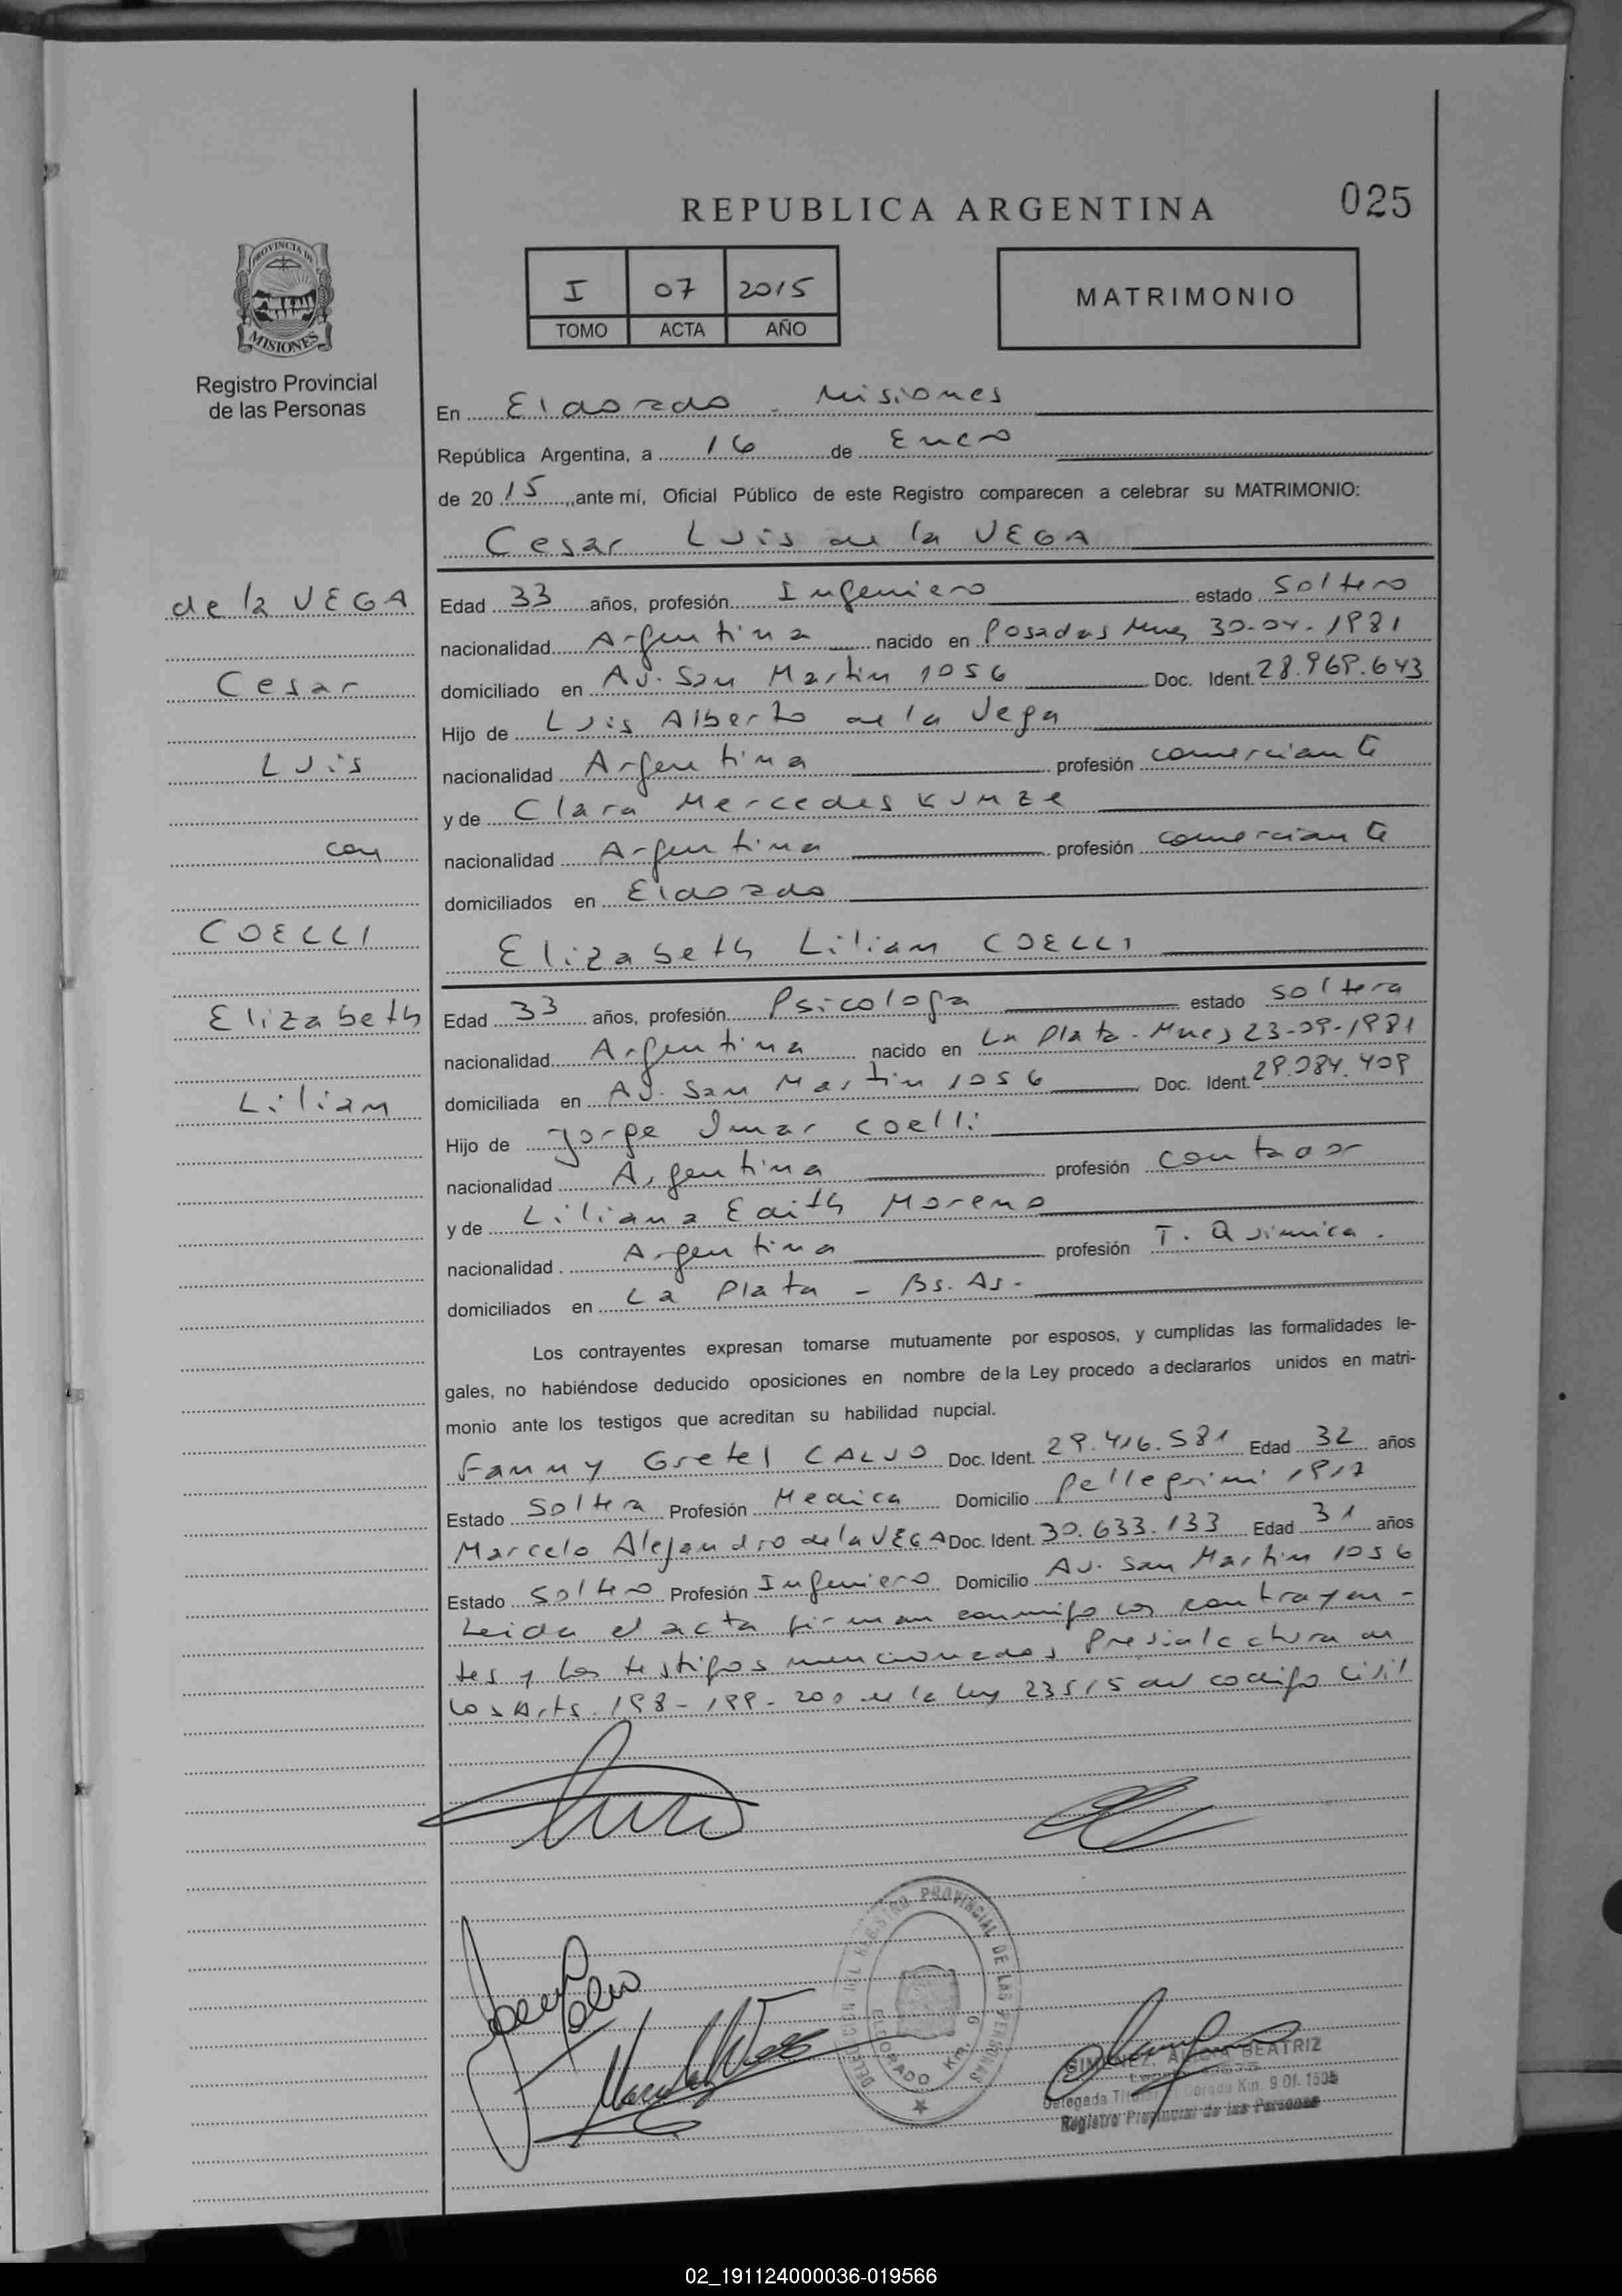 REPUBLICA ARGENTINA
025
PROVINCIA DE MISIONES
Registro Provincial
de las Personas
I 07 2015
TOMO ACTA AÑO
MATRIMONIO
En Eldorado - Misiones
República Argentina, a 16 de Enero
de 2015, ante mí, Oficial Público de este Registro comparecen a celebrar su MATRIMONIO:
Cesar Luis de la VEGA
de la VEGA
Cesar
Luis
con
COELLI
Elizabeth
Lilian
Edad 33 años, profesión Ingeniero estado Soltero
nacionalidad Argentina nacido en Posadas Mnes 30-04-1981
domiciliado en Av. San Martin 1056 Doc. Ident. 28.969.643
Hijo de Luis Alberto de la Vega
nacionalidad Argentina profesión comerciante
y de Clara Mercedes KUNZE
nacionalidad Argentina profesión comerciante
domiciliados en Eldorado
Elizabeth Lilian COELLI
Edad 33 años, profesión Psicologa estado soltera
nacionalidad Argentina nacido en La Plata - Mnes 23-09-1981
domiciliada en Av. San Martin 1056 Doc. Ident. 29.084.409
Hijo de Jorge Omar Coelli
nacionalidad Argentina profesión contador
y de Liliana Edith Moreno
nacionalidad Argentina profesión T. Quimica.
domiciliados en La Plata - Bs. As.-
Los contrayentes expresan tomarse mutuamente por esposos, y cumplidas las formalidades le-
gales, no habiéndose deducido oposiciones en nombre de la Ley procedo a declararlos unidos en matri-
monio ante los testigos que acreditan su habilidad nupcial.
Fanny Gretel CALVO Doc. Ident. 29.416.581 Edad 32 años
Estado Soltera Profesión Medica Domicilio Pellegrini 1917
Marcelo Alejandro de la VEGA Doc. Ident. 30.633.133 Edad 31 años
Estado Soltero Profesión Ingeniero Domicilio Av. San Martin 1056
Leida el acta firman conmigo los contrayen-
tes y los testigos mencionados Previa lectura de
los Arts. 198-199-200 de la ley 23515 del codigo Civil
REGISTRO PROVINCIAL DE LAS PERSONAS
ELDORADO Km.
GIMENEZ, ALICIA BEATRIZ
Delegada Titular Eldorado Km. 9 Of. 1505
Registro Provincial de las Personas
02_191124000036-019566